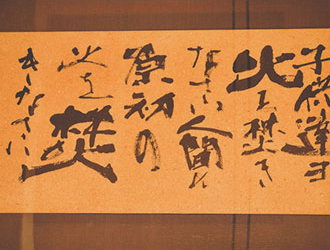 子供達ヨ
火を焚き
なさい人間の
原初の
火を焚
きなさい